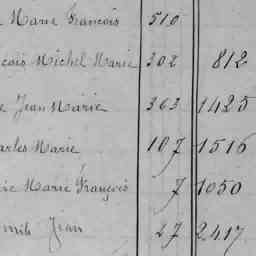 Marie François 510
çois Michel Marie 302 812
Jean Marie 363 1425
arles Marie 107 1516
ie Marie François 7 1050
Jean 27 2417